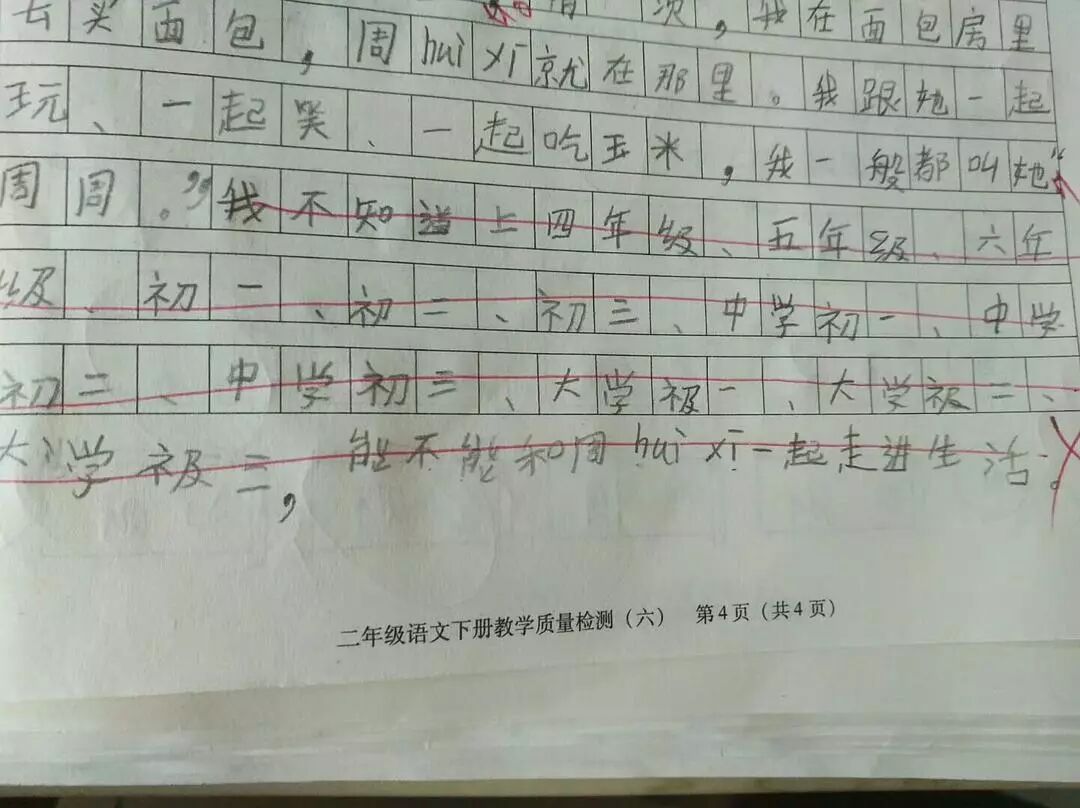 去买面包，周hui xi就在那里。我跟她一起
次，我在面包房里
玩、一起笑、一起吃玉米，我一般都叫她“
周周。”我不知道上四年级、五年级、六年
级、初一、初二、初三、中学初一、中学
初二、中学初三、大学极一、大学极二、
大学极三，能不能和周hui xi一起走进生活。
二年级语文下册教学质量检测（六） 第4页（共4页）